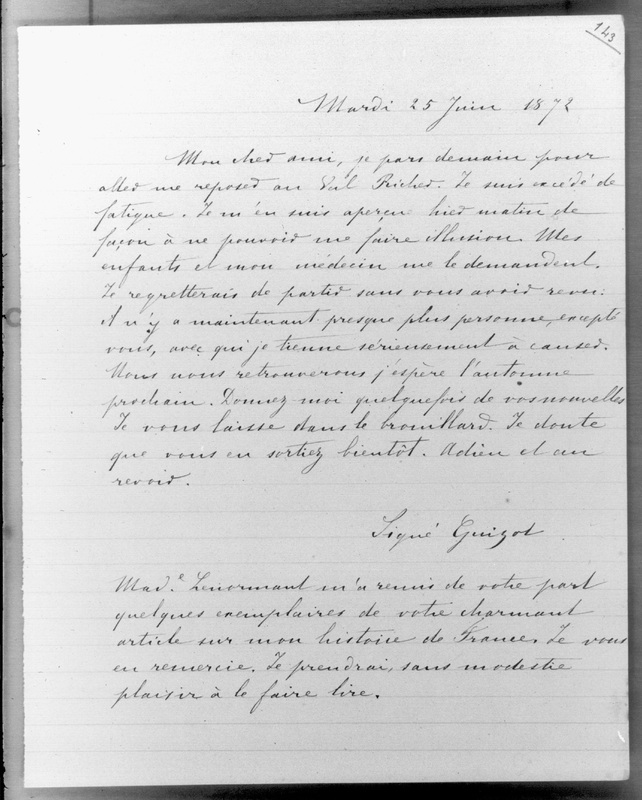 143
Mardi 25 Juin 1872
Mon cher ami, je pars demain pour
aller me reposer au Val Richer. Je suis excédé de
fatigue. Je m'en suis aperçu hier matin de
façon à ne pouvoir me faire illusion. Mes
enfants et mon médecin me le demandent.
Je regretterais de partir sans vous avoir revu.
Il n'y a maintenant presque plus personne, excepté
vous, avec qui je tienne sérieusement à causer.
Nous nous retrouverons j'espère l'automne
prochain. Donnez moi quelquefois de vos nouvelles
Je vous laisse dans le brouillard. Je doute
que vous en sortiez bientôt. Adieu et au
revoir.
Signé Guizot
Made. Lenormant m'a remis de votre part
quelques exemplaires de votre charmant
article sur mon histoire de France. Je vous
en remercie. Je prendrai, sans modestie
plaisir à le faire lire.